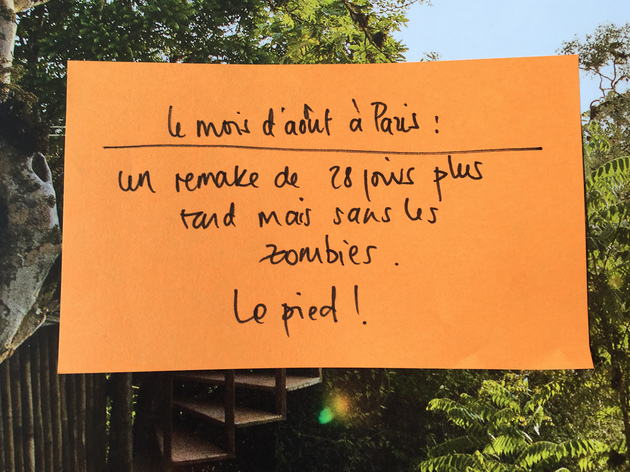 le mois d'août à Paris :
un remake de 28 jours plus
tard mais sans les
zombies.
Le pied !